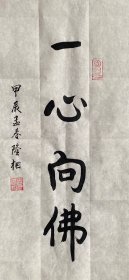 一心向佛
甲辰孟春隆相